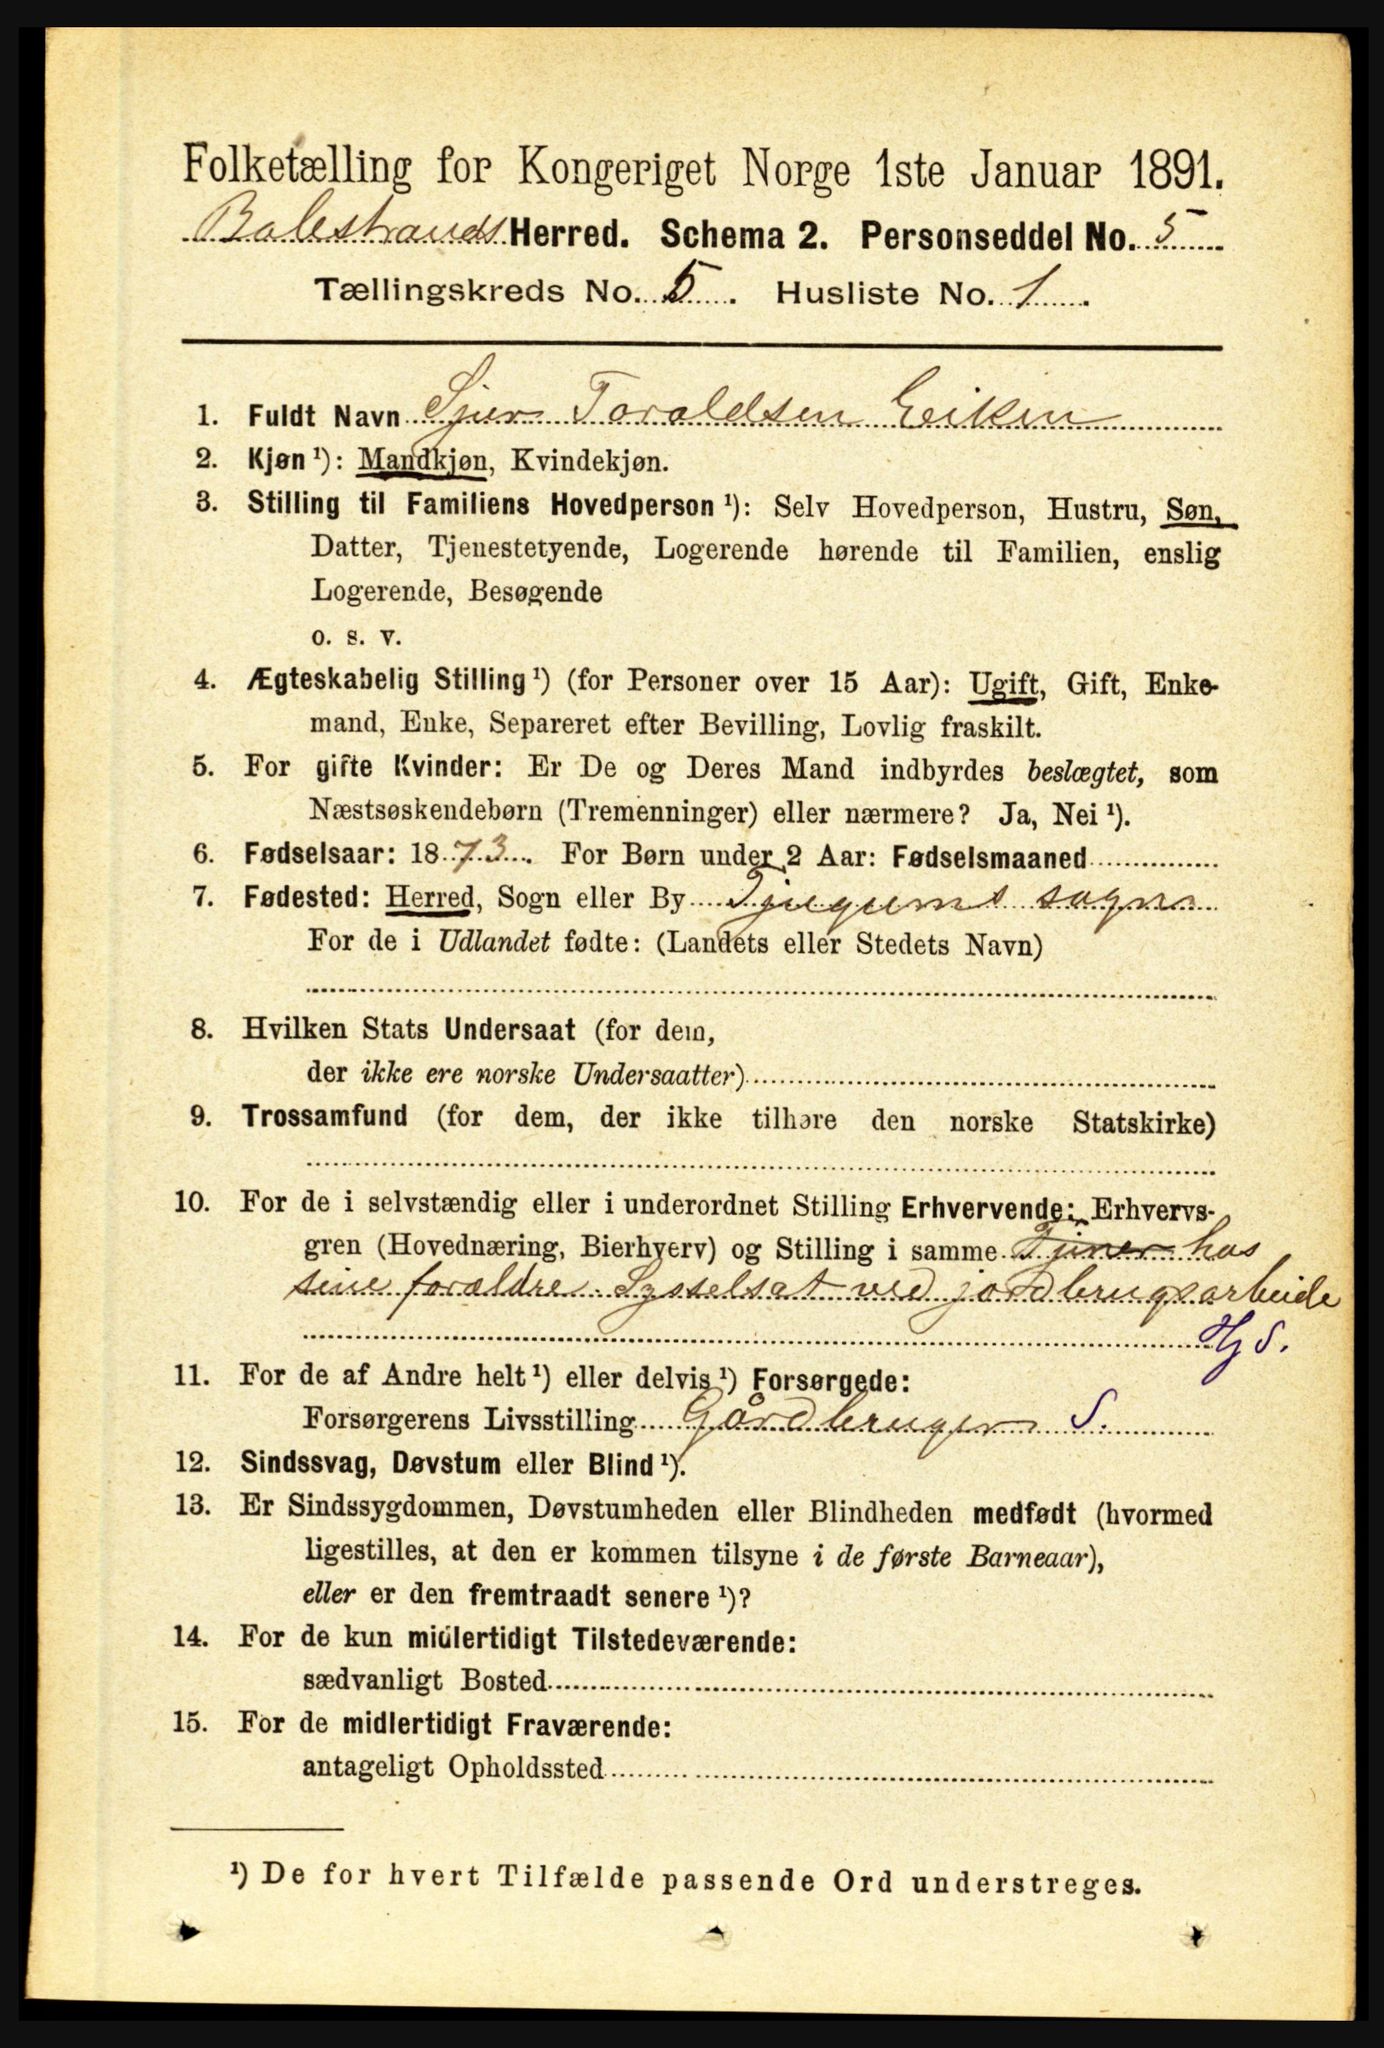 Folketælling for Kongeriget Norge 1ste Januar 1891.
Balestrands Herred. Schema 2. Personseddel No. 5
Tællingskreds No. 5. Husliste No. 1.
1. Fuldt Navn Sjur Toraldsen Eiken
2. Kjøn ¹): Mandkjøn, Kvindekjøn.
3. Stilling til Familiens Hovedperson ¹): Selv Hovedperson, Hustru, Søn,
Datter, Tjenestetyende, Logerende hørende til Familien, enslig
Logerende, Besøgende
o. s. v.
4. Ægteskabelig Stilling ¹) (for Personer over 15 Aar): Ugift, Gift, Enke-
mand, Enke, Separeret efter Bevilling, Lovlig fraskilt.
5. For gifte Kvinder: Er De og Deres Mand indbyrdes beslægtet, som
Næstsøskendebørn (Tremenninger) eller nærmere? Ja, Nei ¹).
6. Fødselsaar: 1873. For Børn under 2 Aar: Fødselsmaaned
7. Fødested: Herred, Sogn eller By Tjugums sogn
For de i Udlandet fødte: (Landets eller Stedets Navn)
8. Hvilken Stats Undersaat (for dem,
der ikke ere norske Undersaatter)
9. Trossamfund (for dem, der ikke tilhøre den norske Statskirke)
10. For de i selvstændig eller i underordnet Stilling Erhvervende: Erhvervs-
gren (Hovednæring, Bierhverv) og Stilling i samme Tjener hos
sine forældre. Sysselsat ved jordbrugsarbeide
Hj S.
11. For de af Andre helt ¹) eller delvis ¹) Forsørgede:
Forsørgerens Livsstilling Gårdbruger S.
12. Sindssvag, Døvstum eller Blind ¹).
13. Er Sindssygdommen, Døvstumheden eller Blindheden medfødt (hvormed
ligestilles, at den er kommen tilsyne i de første Barneaar),
eller er den fremtraadt senere ¹)?
14. For de kun midlertidigt Tilstedeværende:
sædvanligt Bosted
15. For de midlertidigt Fraværende:
antageligt Opholdssted
¹) De for hvert Tilfælde passende Ord understreges.